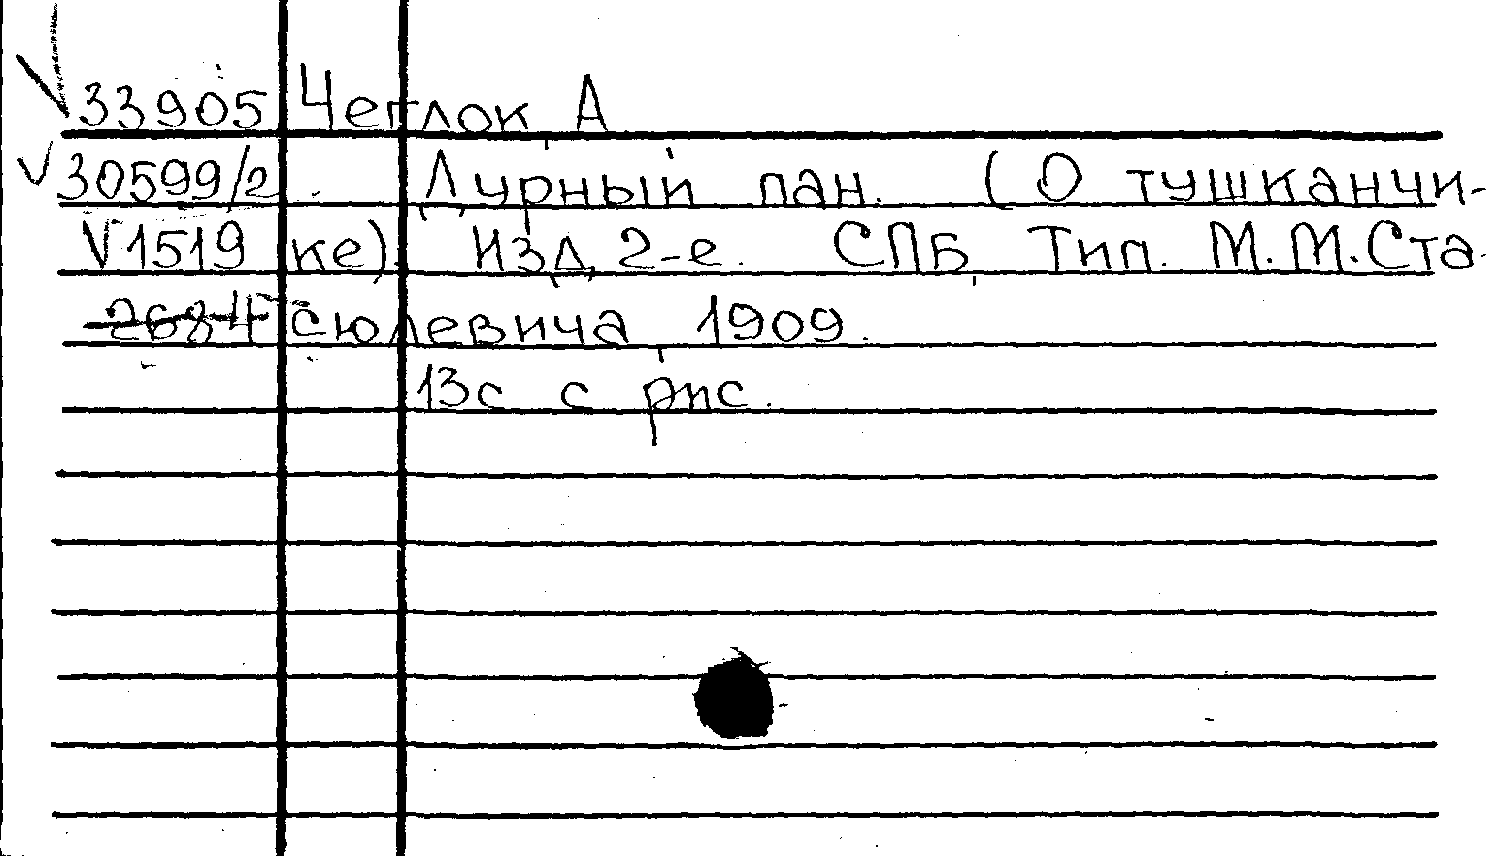 √33905 Чеглок, А
√30599/2. Дурный пан. (О тушканчи-
√1519 ке). Изд, 2-е. СПБ, Тип. М.М.Ста-
2684 сюлевича, 1909.
13с с рис.